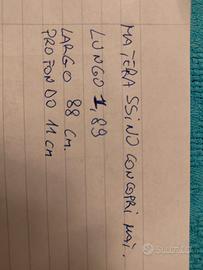 MATERASSINO CON COPRI MAT.
LUNGO 1,89
LARGO 88 CM.
PROFONDO 11 CM
subito